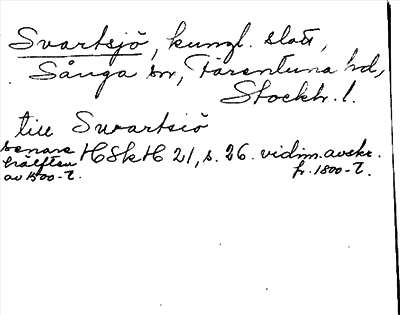 Svartsjö, kungl. slott,
Sånga sn, Färentuna hd,
Stockh. l.
till Swartsiö
senare hälften av 1500-t. HSkH 21, s. 26. vidim. avskr. fr. 1800-t.